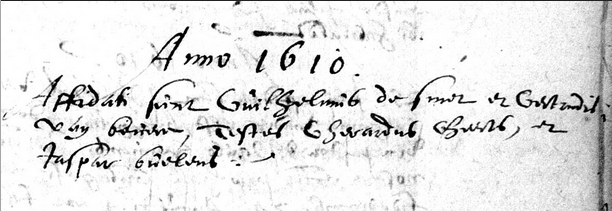 Anno 1610.
Affidati sunt Guilhelmus de smet et Gertrudis
van Testes Gherardus et
Jaspar buelens